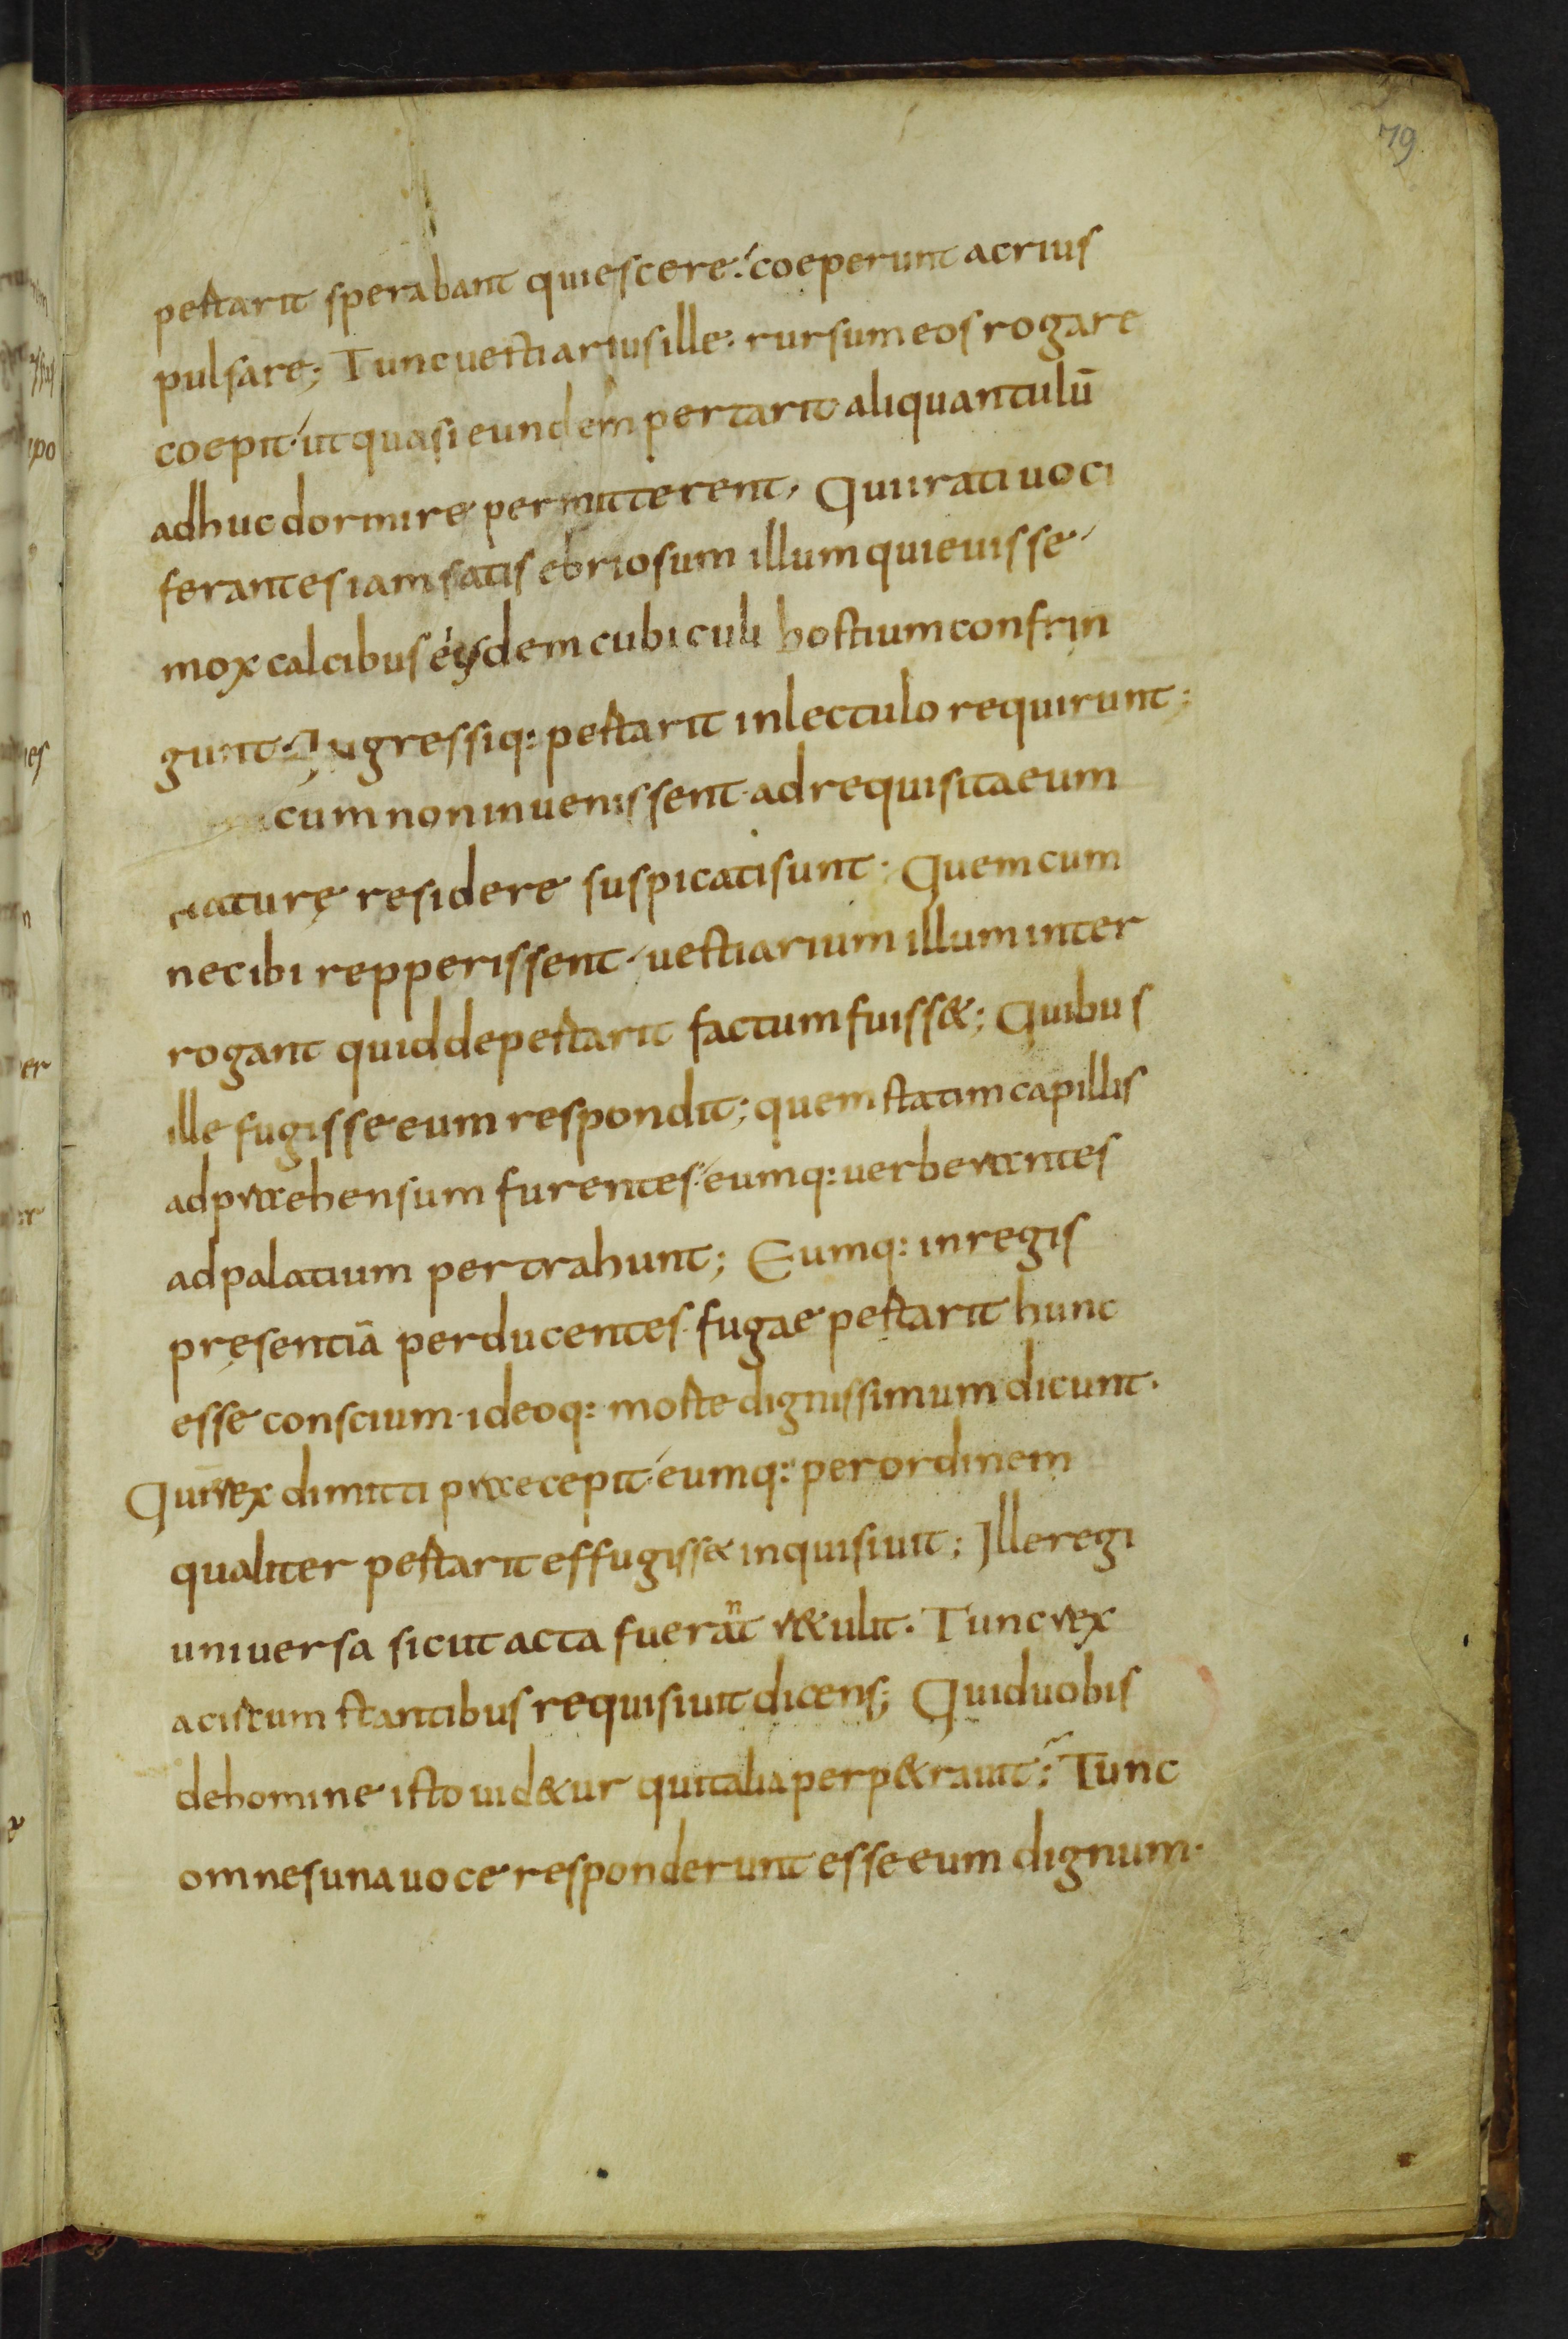 79
pectarit sperabant quiescere. coeperunt acrius
pulsare; Tunc uestiarius ille. rursum eos rogare
coepit. ut quasi eundem pertarit aliquantulū
adhuc dormire permitterent. Qui irati uoci
ferantes iam satis ebriosum illum quieuisse
mox calcibus eiusdem cubiculi hostium confrin
gunt. Ingressiq: pectarit in lectulo requirunt;
cum non inuenissent. ad requisita eum
nature residere suspicati sunt. Quem cum
nec ibi repperissent. uestiarium illum inter
rogant quid de pectarit factum fuiss&; Quibus
ille fugisse eum respondit; quem statim capillis
adpraehensum furentes. eumq: uerberantes
ad palatium pertrahunt; Eumq: in regis
pręsentiā perducentes. fugae pectarit hunc
esse conscium. ideoq: morte dignissimum dicunt.
Quē rex dimitti praecepit. eumq: per ordinem
qualiter pectarit effugiss& inquisiuit; Ille regi
uniuersa sicut acta fuerant r&ulit. Tunc rex
a circum stantibus requisiuit dicens; Quid uobis
de homine isto uid&ur qui talia perp&rauit; Tunc
omnes una uoce responderunt esse eum dignum.